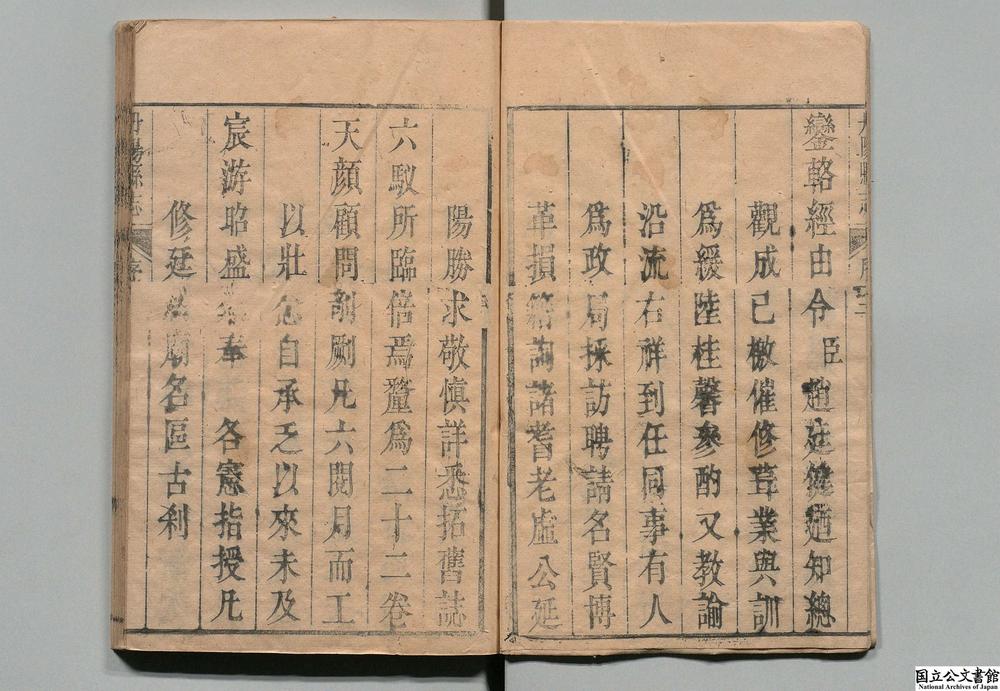 丹陽縣志
序
二
鑾輅經由令臣趙廷健廼知總
觀成已檄催修葺業與訓
爲緩陸桂馨參酌又教諭
沿流右祥到任同事有人
爲政局採訪聘請名賢博
革損箱詢諸耆老虛公延
陽勝求敬慎詳悉拓舊誌
六馭所臨倍焉釐爲二十二卷
天顔顧問剞劂凡六閱月而工
以壯自承乏以來未及
宸游昭盛奉各憲指授凡
修建廟名區古刹
丹陽縣志
序
国立公文書館
National Archives of Japan